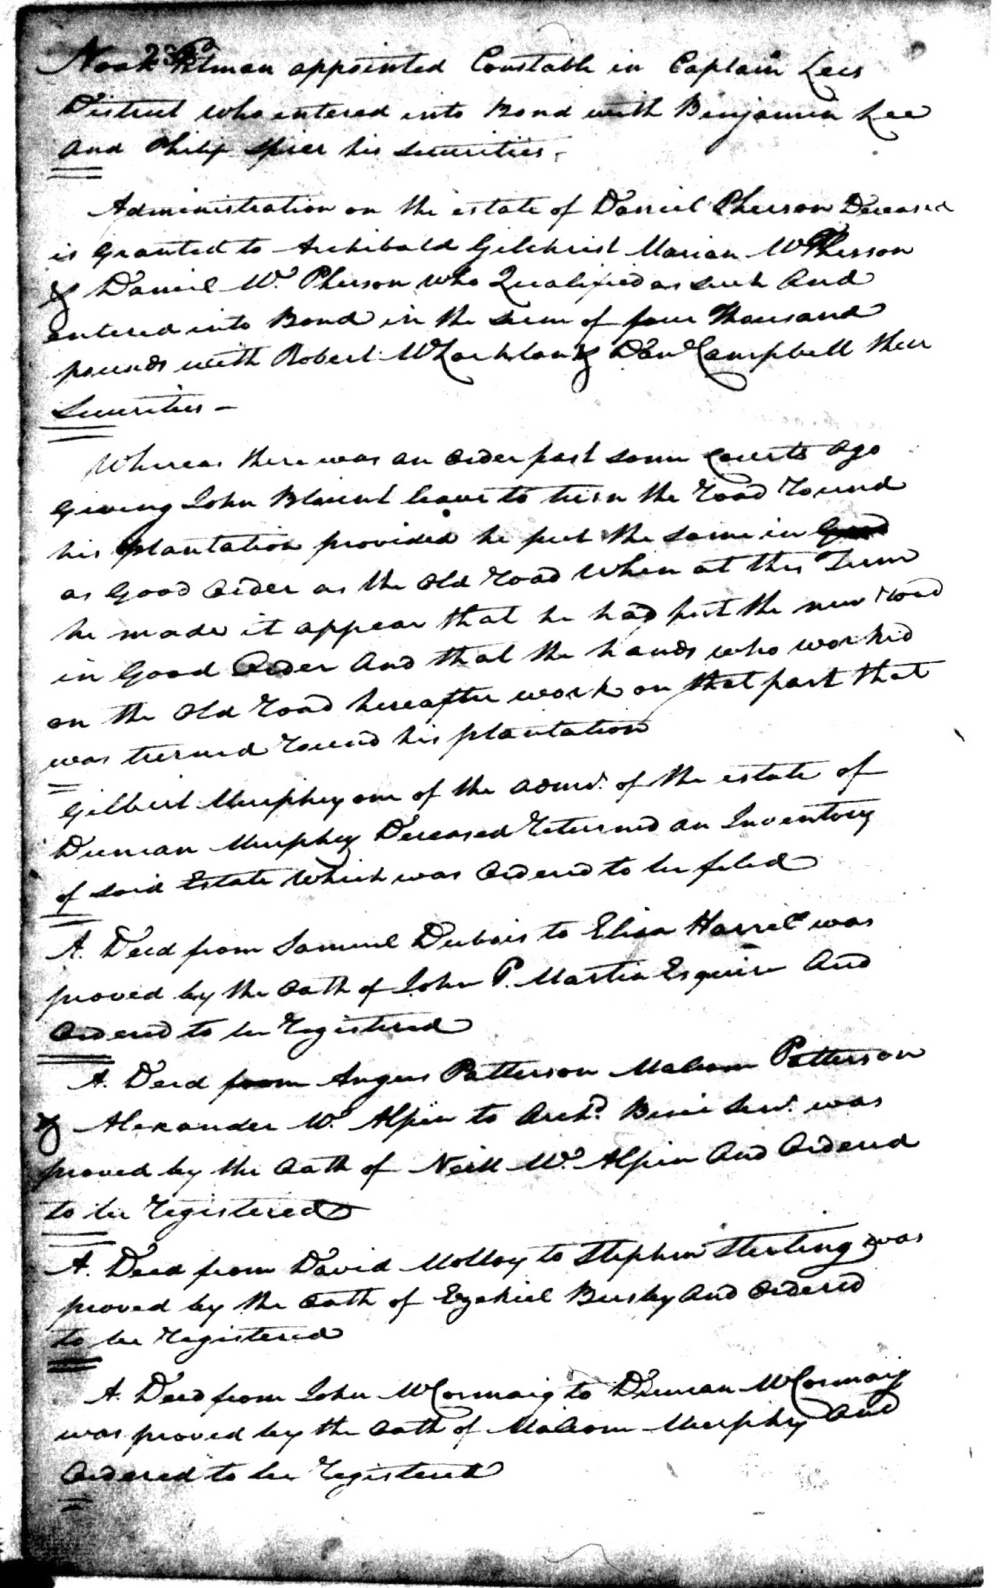 Noah Pitman appointed Constable in Captain Lees
District who entered into Bond with Benjamin Lee
And Philip Spier his securities.
Administration on the estate of Daniel Pherson Deceased
is Granted to Archibald Gilchrist Marian McPherson
& Daniel Mc. Pherson who Qualified as such And
entered into Bond in the sum of four Thousand
pounds with Robert McLachlan & Danl Campbell their
Securities -
Whereas there was an order past some Courts ago
Giving John Blount leave to turn the road round
his plantation provided he put the same in
as Good order as the old road When at this Term
he made it appear that he had put the new road
in Good Order And that the hands who worked
on the old road hereafter work on that part that
was turned round his plantation
Gilbert Murphey one of the admr. of the estate of
Duncan Murphey Deceased returned an Inventory
of said Estate Which was Ordered to be filed
A Deed from Samuel Dubois to Elisa Harrel was
proved by the Oath of John P. Martin Esquire And
Ordered to be registered
A Deed from Angus Patterson Malcom Patterson
& Alexander Mc. Alpin to Archd. was
proved by the Oath of Neill Mc. Alpin And Ordered
to be registered
A Deed from David Molloy to Stephen Sterling was
proved by the Oath of Ezekiel Busby And Ordered
to be registered
A Deed from John McCormaig to Duncan McCormaig
was proved by the Oath of Malcom Murphy And
Ordered to be registered